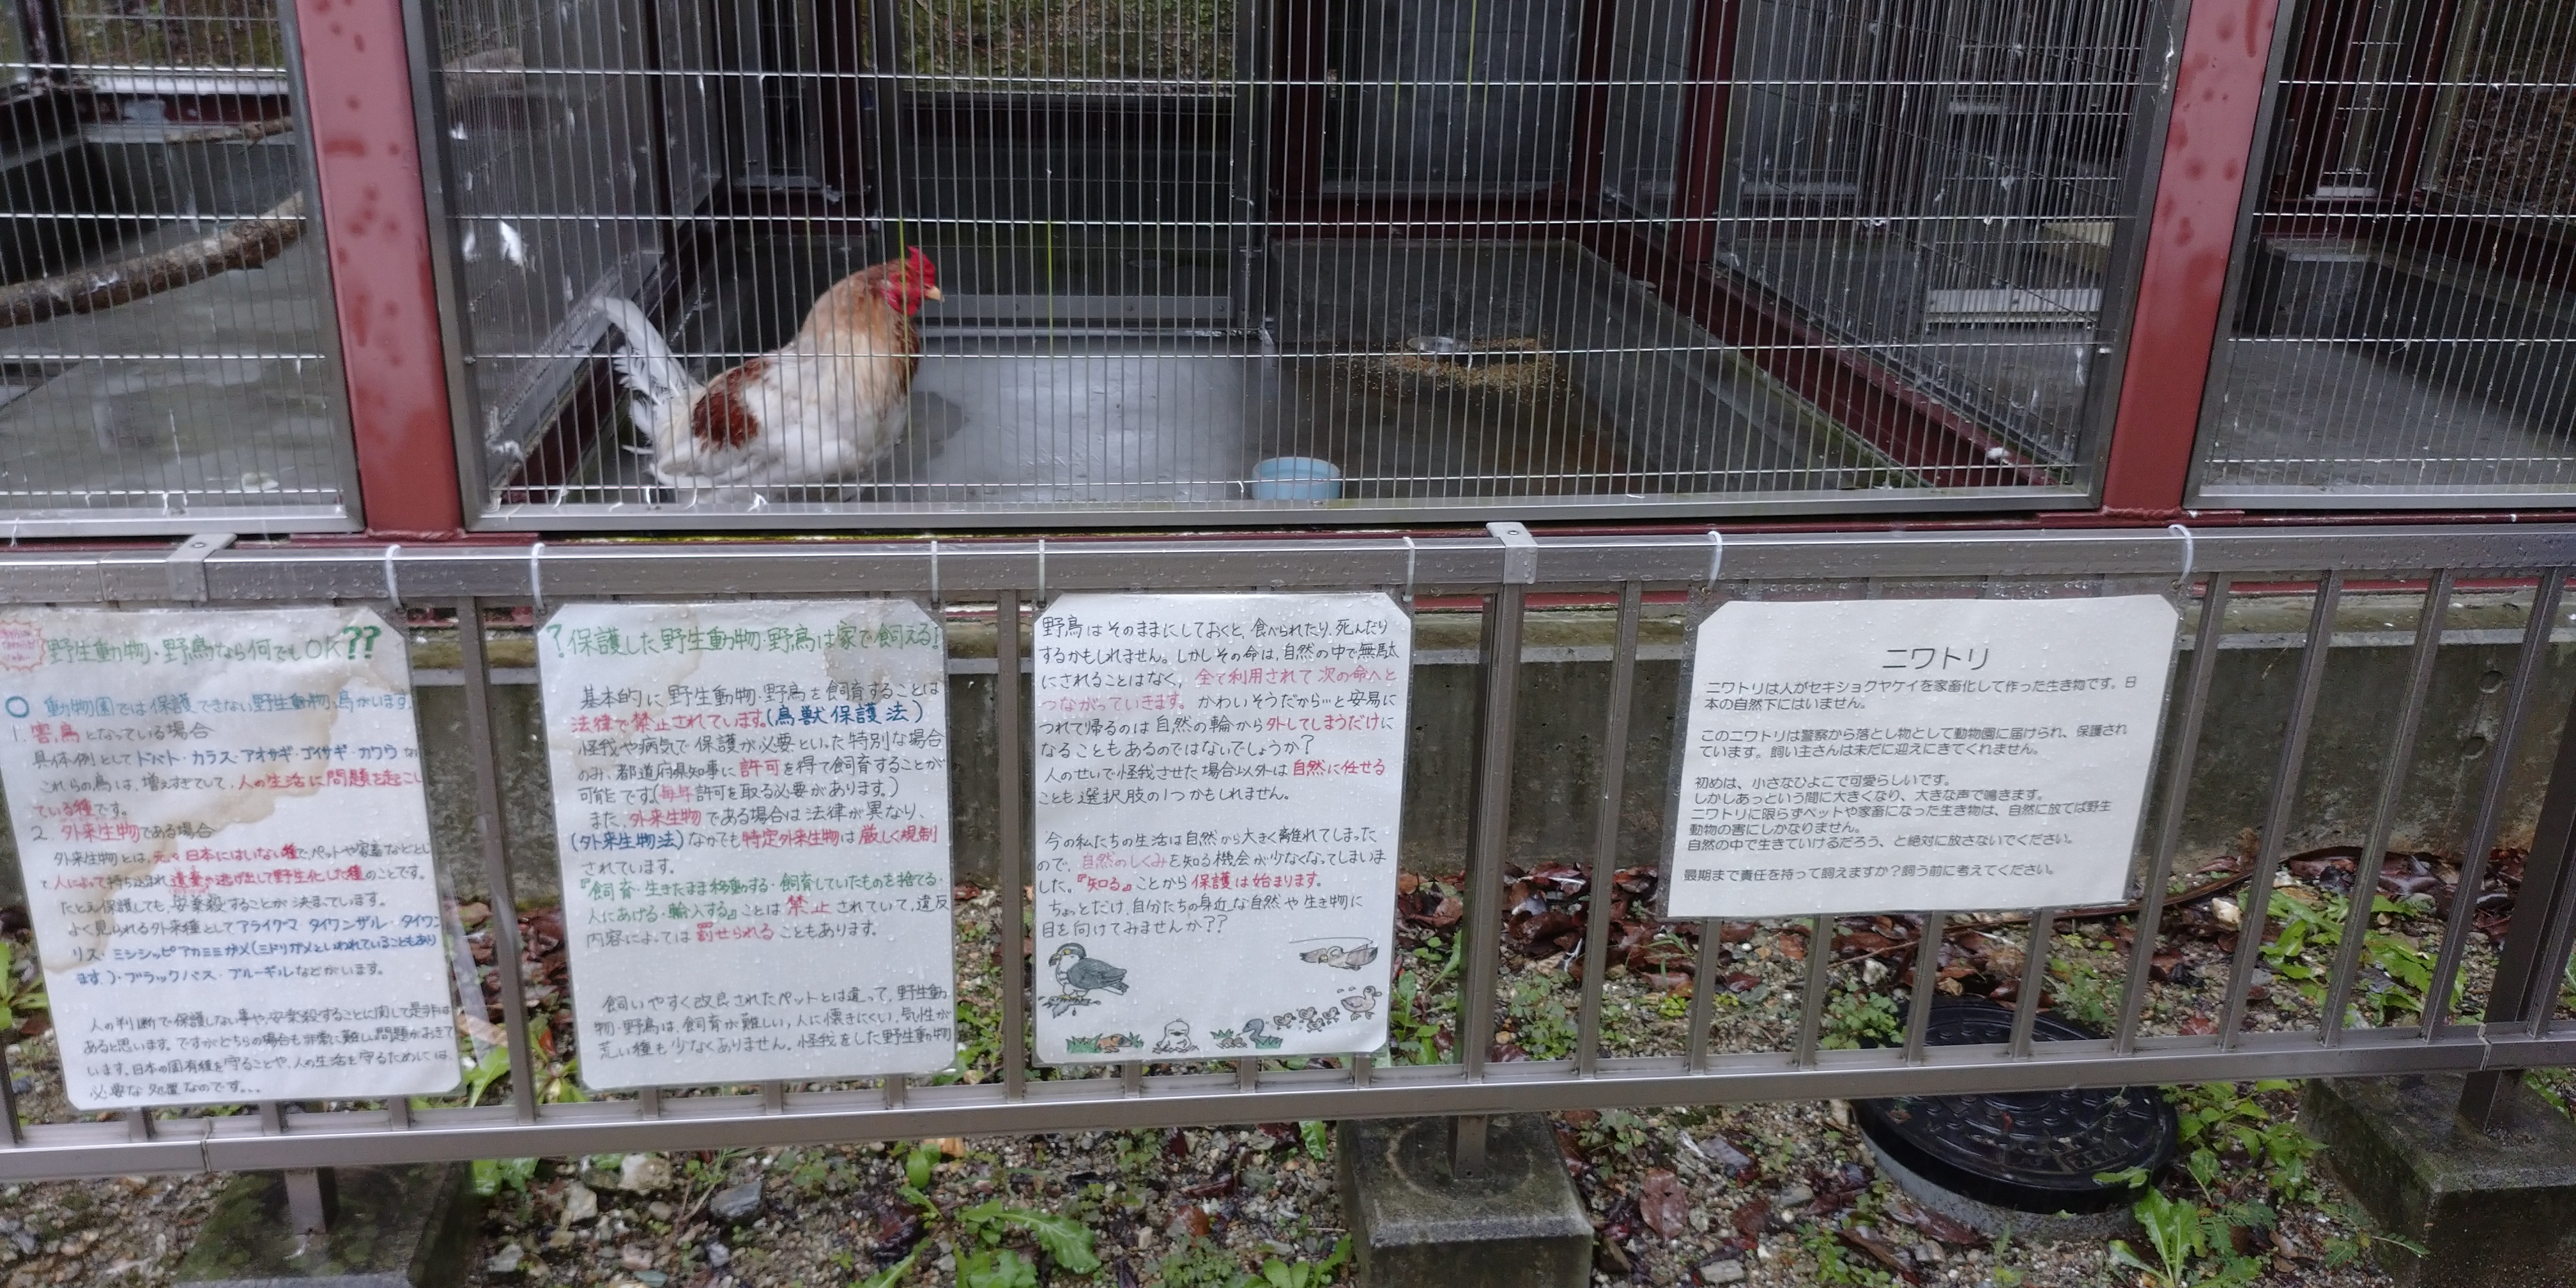 野生動物・野鳥なら何でもOK??
○ 動物園では保護できない野生動物、鳥がいます。
1. 害鳥となっている場合
具体例としてドバト・カラス・アオサギ・ゴイサギ・カワウ
これらの鳥は、増えすぎていて、人の生活に問題を起こし
ている種です。
2. 外来生物である場合
外来生物とは、元々日本にはいない種で、ペットや家畜などとし
て人によって持ち込まれ、遺棄や逃げ出して野生化した種のことです。
たとえ保護しても、安楽殺することが決まっています。
よく見られる外来種としてアライグマ・タイワンザル・タイワン
リス・ミシシッピアカミミガメ(ミドリガメといわれていることもあり
ます。)・ブラックバス・ブルーギルなどがいます。
人の判断で保護しない事や、安楽殺することに関して是非は
あると思います。ですがどちらの場合も非常に難しい問題がおきて
います。日本の固有種を守ることや、人の生活を守るためには、
必要な処置なのです...
?保護した野生動物・野鳥は家で飼える!
基本的に野生動物・野鳥を飼育することは
法律で禁止されています。(鳥獣保護法)
怪我や病気で保護が必要といった特別な場合
のみ、都道府県知事に許可を得て飼育することが
可能です。(毎年許可を取る必要があります。)
また、外来生物である場合は法律が異なり、
(外来生物法)なかでも特定外来生物は厳しく規制
されています。
『飼育・生きたまま移動する・飼育していたものを捨てる・
人にあげる・輸入する』ことは禁止されていて、違反
内容によっては罰せられることもあります。
飼いやすく改良されたペットとは違って、野生動
物・野鳥は、飼育が難しい、人に懐きにくい、気性が
荒い種も少なくありません。怪我をした野生動物
野鳥はそのままにしておくと、食べられたり、死んだり
するかもしれません。しかしその命は、自然の中で無駄
にされることはなく、全て利用されて次の命へと
つながっていきます。かわいそうだから…と安易に
つれて帰るのは自然の輪から外してしまうだけに
なることもあるのではないでしょうか?
人のせいで怪我させた場合以外は自然に任せる
ことも選択肢の1つかもしれません。
今の私たちの生活は自然から大きく離れてしまった
ので、自然のしくみを知る機会が少なくなってしまいま
した。『知る』ことから保護は始まります。
ちょっとだけ、自分たちの身近な自然や生き物に
目を向けてみませんか??
ニワトリ
ニワトリは人がセキショクヤケイを家畜化して作った生き物です。日
本の自然下にはいません。
このニワトリは警察から落とし物として動物園に届けられ、保護され
ています。飼い主さんは未だに迎えにきてくれません。
初めは、小さなひよこで可愛らしいです。
しかしあっという間に大きくなり、大きな声で鳴きます。
ニワトリに限らずペットや家畜になった生き物は、自然に放てば野生
動物の害にしかなりません。
自然の中で生きていけるだろう、と絶対に放さないでください。
最期まで責任を持って飼えますか?飼う前に考えてください。